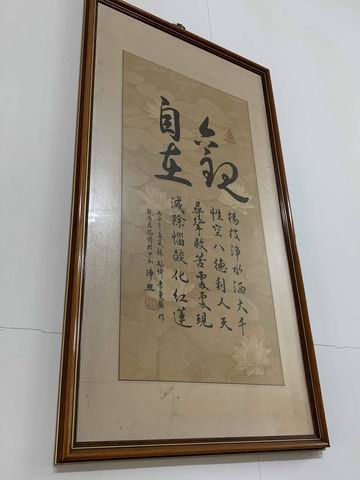 觀
自在
楊枝淨水洒大千
性空八德利人天
尋聲救苦處處現
滅除惱燄化紅蓮